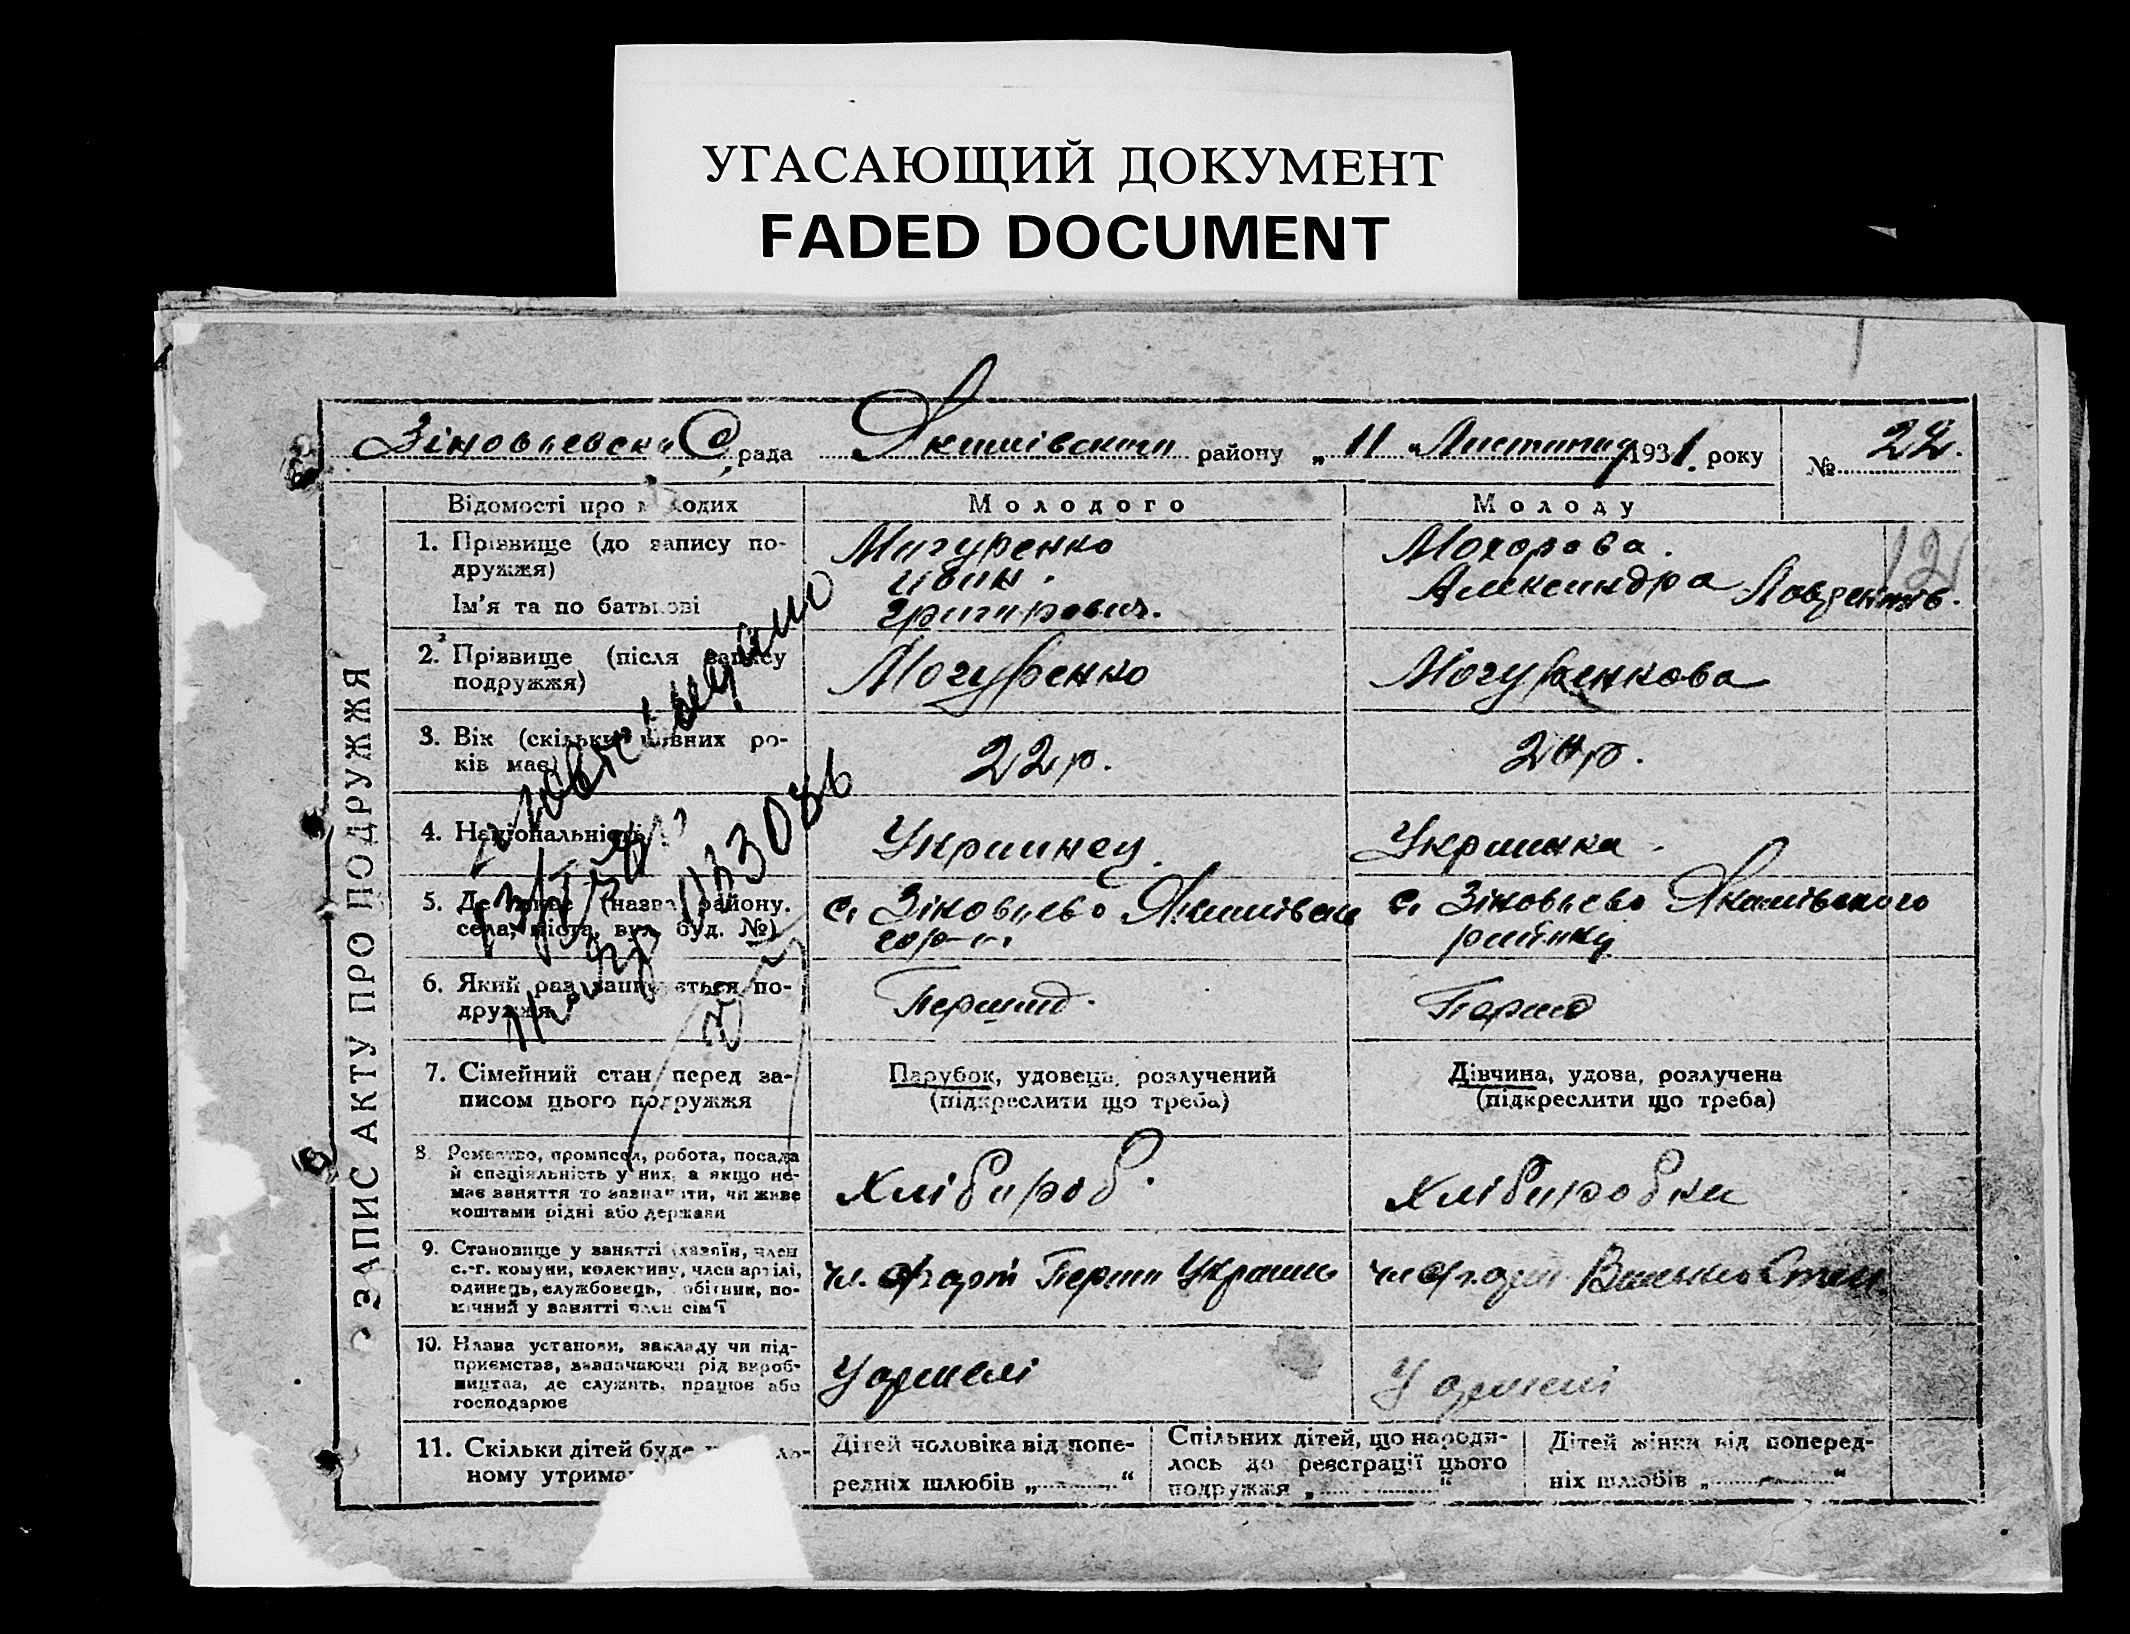 УГАСАЮЩИЙ ДОКУМЕНТ
FADED DOCUMENT
Зіновьевска С рада Якимівского району „ 11 " Листопад 1931. року № 22.
ЗАПИС АКТУ ПРО ПОДРУЖЖЯ
Відомості про м одих
Молодого
Молоду
1. Прізвище (до запису по-
дружжя)
Ім'я та по батькові
Могуренко
Иван.
Григорович.
Мохорова.
Александра
12
2. Прізвище (після запису
подружжя)
Могуренко
Могуренкова
3. Вік (скільки повних ро-
ків має)
22 р.
20 р.
4. Національність
Украинец.
Украинка.
5. Де живе (назва району,
села, міста, вул. буд. №)
с. Зіновьево Якимівск
с. Зіновьево Якимівского
району
6. Який раз записується по-
дружжя
Перший.
Перший
7. Сімейний стан перед за-
писом цього подружжя
Парубок, удовець, розлучений
(підкреслити що треба)
Дівчина, удова, розлучена
(підкреслити що треба)
8. Ремество, промисел, робота, посада
й спеціяльність у них, а якщо не-
має заняття то зазначити, чи живе
коштами рідні або держави
Хлібороб.
Хліборобка
9. Становище у занятті (хазяїн, член
с.-г. комуни, колективу, член артілі,
одинець, службовець, обітник, по-
мічний у занятті член сім'ї
чл. с/г арт Перш Украин
чл с/г арт Степ
10. Назва установи, закладу чи під-
приємства, зазначаючи рід вироб-
ництва, де служить, працює або
господарює
У артелі
У артелі
11. Скільки дітей буде
ному утрима
Дітей чоловіка від попе-
редніх шлюбів „ — “
Спільних дітей, що народи-
лось до реєстрації цього
подружжя „ “
Дітей жінки від поперед-
ніх шлюбів „ — “